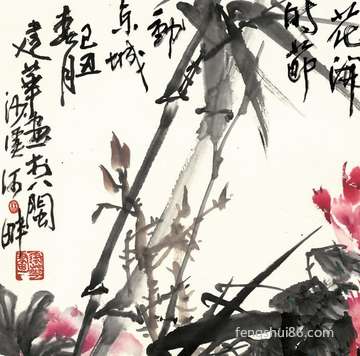 花開
時節
動
京城
己丑
春月
建華畫於八閩
沙溪河畔
fengshui86.com